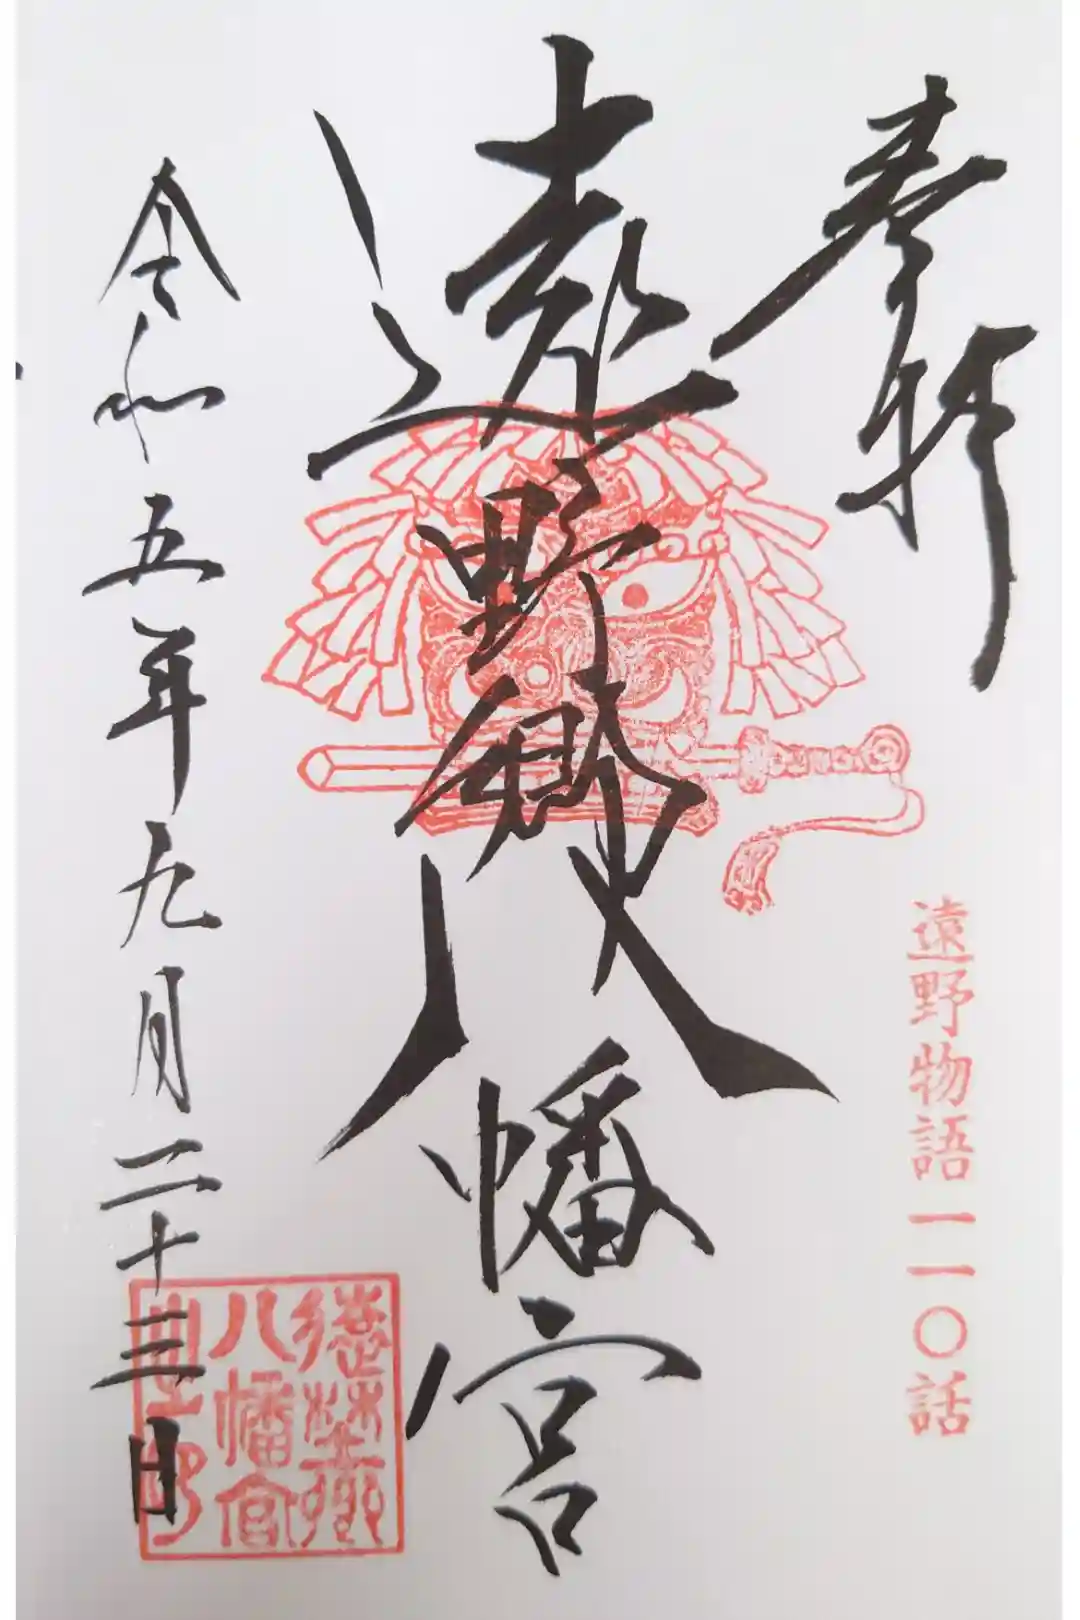 奉拝
遠野物語一一〇話
遠野郷八幡宮
令和五年九月二十三日
遠野郷
八幡宮